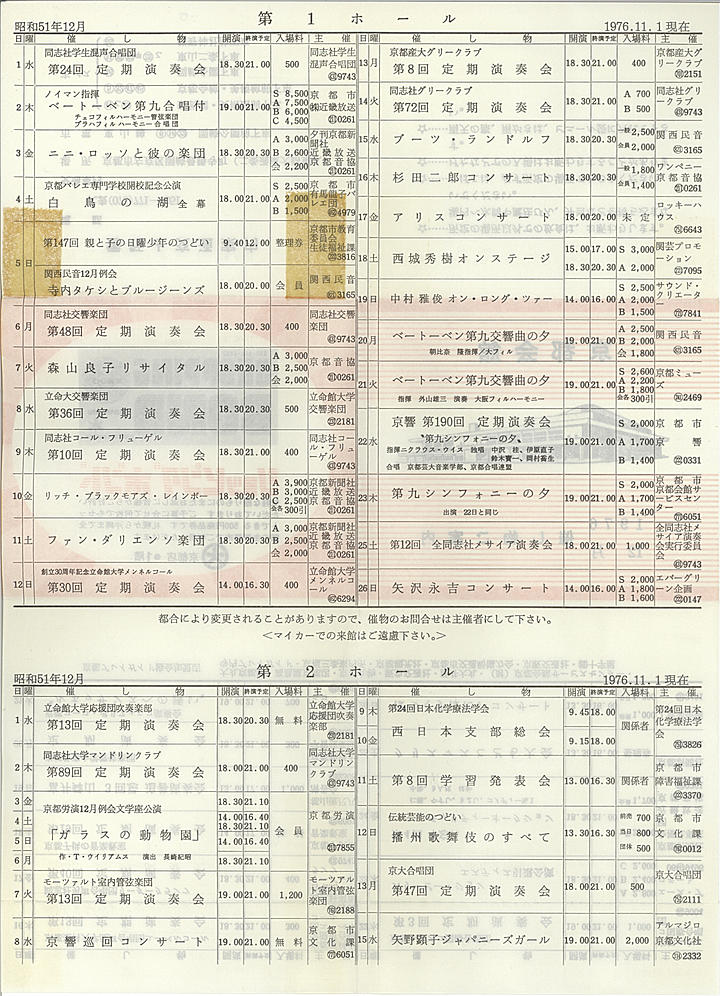 第1ホール
昭和51年12月
1976.11.1現在
日 曜 催し物 開演 終演予定 入場料 主催
1 水 同志社学生混声合唱団
第24回 定期演奏会 18.30 21.00 500 同志社学生混声合唱団 9743
2 木 ノイマン指揮
ベートーベン第九合唱付
チェコフィルハーモニー管弦楽団
プラハフィルハーモニー合唱団
19.00 21.00 S 8,500 A 7,500 B 6,000 C 4,500 京都市 ㈱近畿放送 0261
3 金 ニニ・ロッソと彼の楽団 18.30 20.30 A 3,000 B 2,600 会 2,200 夕刊京都新聞社 近畿放送 京都音協 0261
4 土 京都バレエ専門学校開校記念公演
白鳥の湖 全幕 18.00 21.00 S 2,500 A 2,000 B 1,500 京都市 有馬龍子バレエ団 4979
5 日 第147回 親と子の日曜少年のつどい 9.40 12.00 整理券 京都市教育委員会 生徒福祉課 3816
関西民音12月例会
寺内タケシとブルージーンズ 18.00 20.00 会員 関西民音 3165
6 月 同志社交響楽団
第48回 定期演奏会 18.30 20.30 400 同志社交響楽団 9743
7 火 森山良子リサイタル 18.30 20.30 A 3,000 B 2,500 会 2,000 京都音協 0261
8 水 立命大交響楽団
第36回 定期演奏会 18.30 20.30 500 立命館大学交響楽団 2181
9 木 同志社コール・フリューゲル
第10回 定期演奏会 18.30 21.00 400 同志社コール・フリューゲル 9743
10 金 リッチ・ブラックモアズ・レインボー 18.30 20.30 A 3,900 B 3,000 C 2,500 会各300引 京都新聞社 近畿放送 京都音協 0261
11 土 ファン・ダリエンソ楽団 18.30 20.30 A 3,000 B 2,500 会 2,000 京都新聞社 近畿放送 京都音協 0261
12 日 創立30周年記念立命館大学メンネルコール
第30回 定期演奏会 14.00 16.30 400 立命館大学メンネルコール 6294
日 曜 催し物 開演 終演予定 入場料 主催
13 月 京都産大グリークラブ
第8回 定期演奏会 18.30 21.00 400 京都産大グリークラブ 2151
14 火 同志社グリークラブ
第72回 定期演奏会 18.30 21.00 A 700 B 500 同志社グリークラブ 9743
15 水 ブーツ・ランドルフ 18.30 20.30 一般 2,500 会員 2,000 関西民音 3165
16 木 杉田二郎コンサート 18.30 20.30 一般 1,800 会員 1,400 ワンペニー 京都音協 0261
17 金 アリスコンサート 18.00 20.00 未定 ロッキーハウス 6643
18 土 西城秀樹オンステージ 15.00 17.00 18.30 20.30 S 3,000 A 2,000 関芸プロモーション 7095
19 日 中村雅俊 オン・ロング・ツァー 14.00 16.00 S 2,500 A 2,000 B 1,500 サウンド・クリエーター 7841
20 月 ベートーベン第九交響曲の夕
朝比奈 隆指揮/大フィル 19.00 21.00 A 2,500 B 2,000 会 1,800 関西民音 3165
21 火 ベートーベン第九交響曲の夕
指揮 外山雄三 演奏 大阪フィルハーモニー 19.00 21.00 S 2,600 A 2,200 B 1,800 会各300引 京都ミューズ 2469
22 水 京響 第190回 定期演奏会
〝第九シンフォニーの夕〟
指揮ニクラウス・ウイス 独唱 中沢 桂、伊原直子
鈴木寛一、岡村喬生
合唱 京都芸大音楽学部、京都合唱連盟
19.00 21.00 S 2,000 A 1,700 B 1,400 京都市 京響 0331
23 木 第九シンフォニーの夕
出演―22日と同じ 19.00 21.00 S 2,000 A 1,700 B 1,400 京都市 京都会館サービスセンター 6051
25 土 第12回 全同志社メサイア演奏会 18.00 21.00 1,000 全同志社メサイア演奏会実行委員会 9743
26 日 矢沢永吉コンサート 14.00 16.00 S 2,000 A 1,800 B 1,600 エバーグリーン企画 0147
都合により変更されることがありますので、催物のお問合せは主催者にして下さい。
＜マイカーでの来館はご遠慮下さい。＞
第2ホール
昭和51年12月
1976.11.1現在
日 曜 催し物 開演 終演予定 入場料 主催
1 水 立命館大学応援団吹奏楽部
第13回 定期演奏会 18.30 20.30 無料 立命館大学応援団吹奏楽部 2181
2 木 同志社大学マンドリンクラブ
第89回 定期演奏会 18.00 21.00 400 同志社大学マンドリンクラブ 9743
3 金 18.30 21.10
4 土 京都労演12月例会文学座公演 14.00 16.40 18.30 21.10
5 日 「ガラスの動物園」 14.00 16.40 会員 京都労演 7855
6 月 作・T・ウイリアムス 演出 長崎紀昭 18.30 21.10
7 火 モーツァルト室内管弦楽団
第13回 定期演奏会 19.00 21.00 1,200 モーツアルト室内管弦楽団 2188
8 水 京響巡回コンサート 19.00 21.00 無料 京都市文化課 6051
日 曜 催し物 開演 終演予定 入場料 主催
9 木 第24回日本化学療法学会 9.45 18.00 関係者 第24回日本化学療法学会 3826
10 金 西日本支部総会 9.15 18.00
11 土 第8回 学習発表会 13.00 16.30 関係者 京都市障害福祉課 3370
12 日 伝統芸能のつどい
播州歌舞伎のすべて 13.30 16.30 前売 700 当日 800 団体 500 京都市文化課 0012
13 月 京大合唱団
第47回 定期演奏会 18.00 21.00 500 京大合唱団 2111
15 水 矢野顕子ジャパニーズガール 19.00 21.00 2,000 アルマジロ 京都文化社 2332